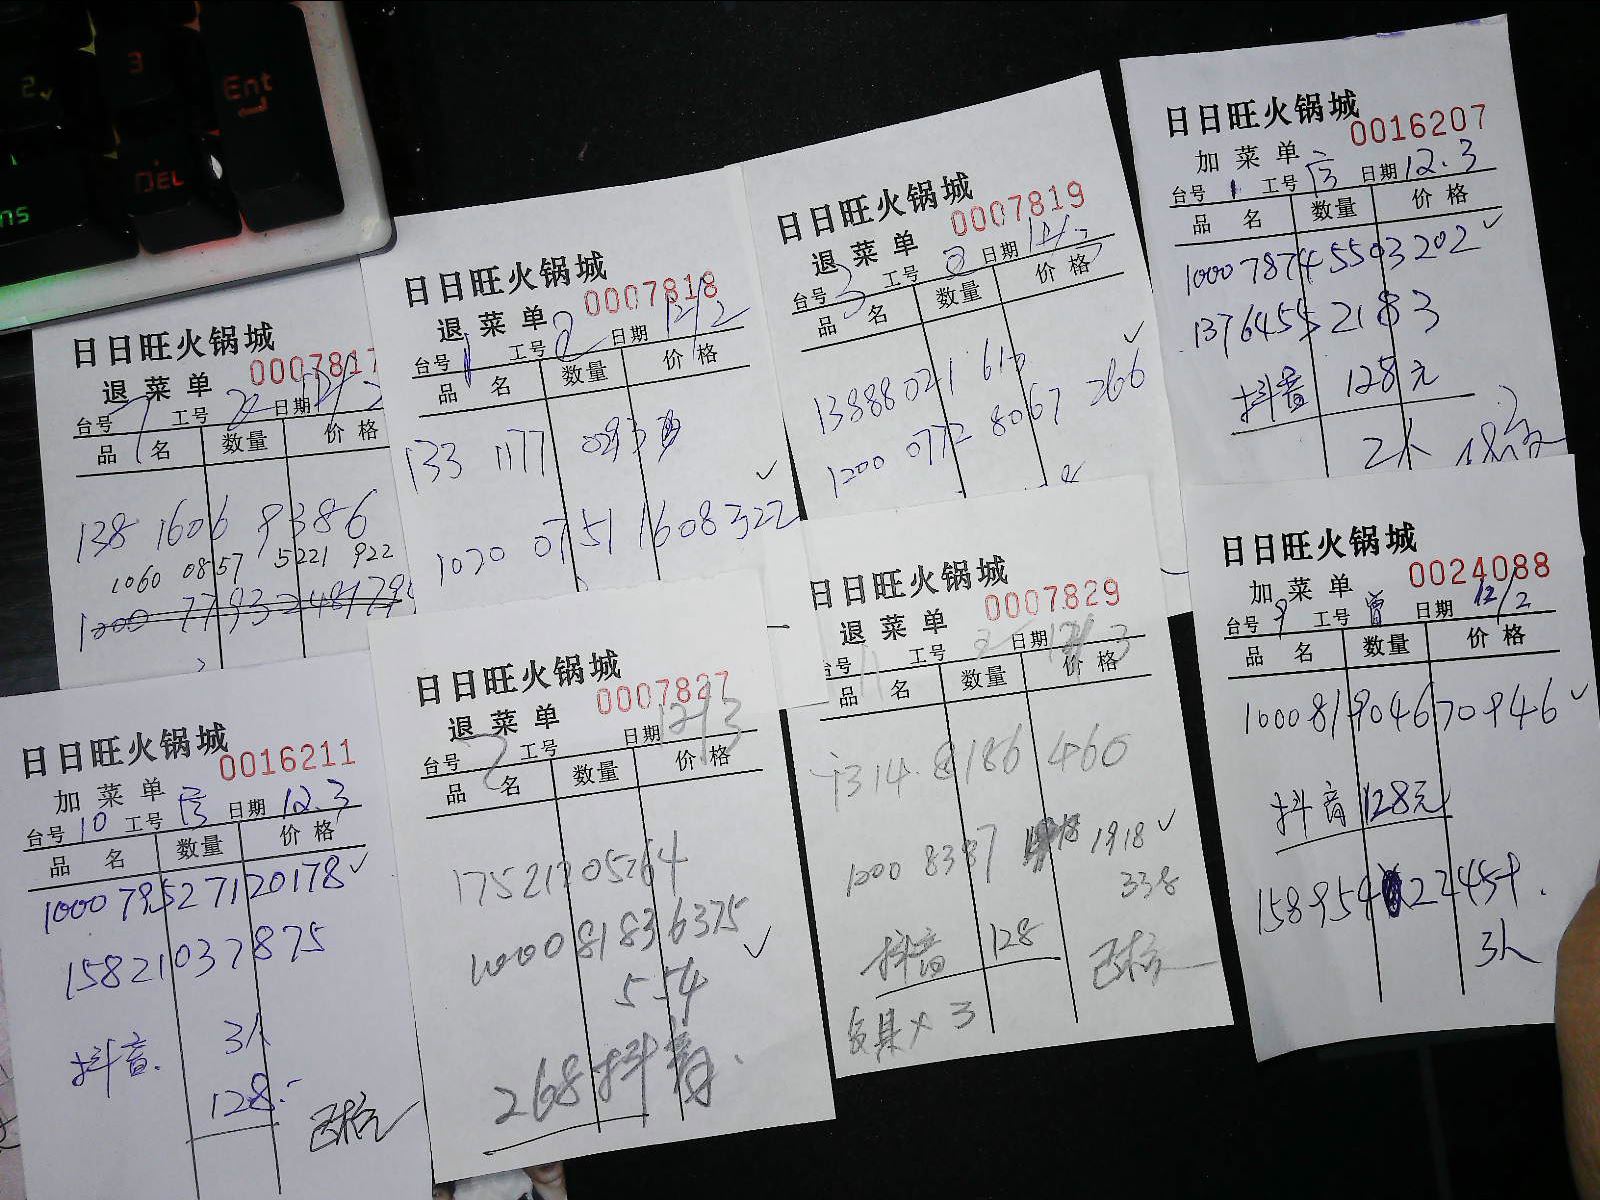 2
3
Ent
DEL
ns
日日旺火锅城
0007817
退菜单
台号 7 工号 2 日期 12/2
品名 数量 价格
138 1606 9386
1060 0857 5221 922
日日旺火锅城
0007818
退菜单
台号 1 工号 2 日期 12/2
品名 数量 价格
133 1177
1070 0751 1608322
日日旺火锅城
0007819
退菜单
台号 3 工号 日期
品名 数量 价格
13888021
1200 0772 8067 266
日日旺火锅城
0016207
加菜单
台号 1 工号 日期 12.3
品名 数量 价格
100078745503202
13764552183
抖音 128元
2人
日日旺火锅城
0016211
加菜单
台号 10 工号 日期 12.3
品名 数量 价格
100079527120178
15821037875
抖音. 3人
128.-
已核
日日旺火锅城
0007827
退菜单
台号 7 工号 日期 12/3
品名 数量 价格
17521705264
1000081836375
554
268抖音.
日日旺火锅城
0007829
退菜单
台号 11 工号 日期 12/3
品名 数量 价格
1314 8186 460
1000 8387 1918
338
抖音 128 已核
餐具×3
日日旺火锅城
0024088
加菜单
台号 9 工号 曾 日期 12/2
品名 数量 价格
100081904670946
抖音128元
3人